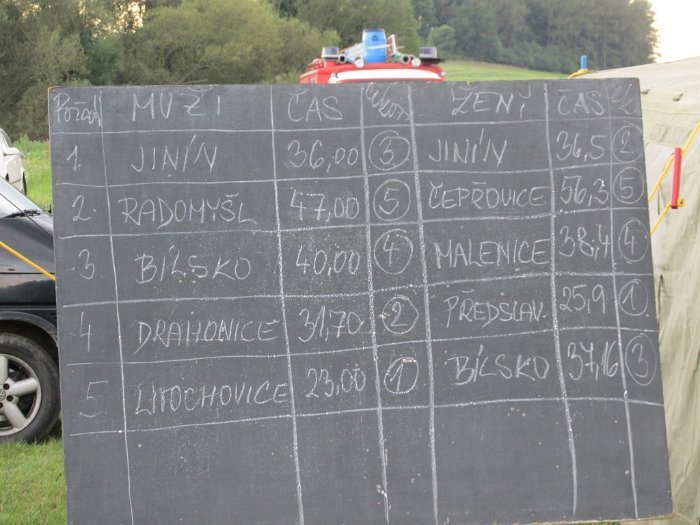 MUŽI ČAS ŽENY ČAS
1. JINÍN 36,00 3 JINÍN 36,5 2
2. RADOMYŠL 47,00 5 ČEPŘOVICE 56,3 5
3. BÍLSKO 40,00 4 MALENICE 38,4 4
4 DRAHONICE 31,70 2 PŘEDSLAV. 25,9 1
5 LITOCHOVICE 23,00 1 BÍLSKO 37,16 3